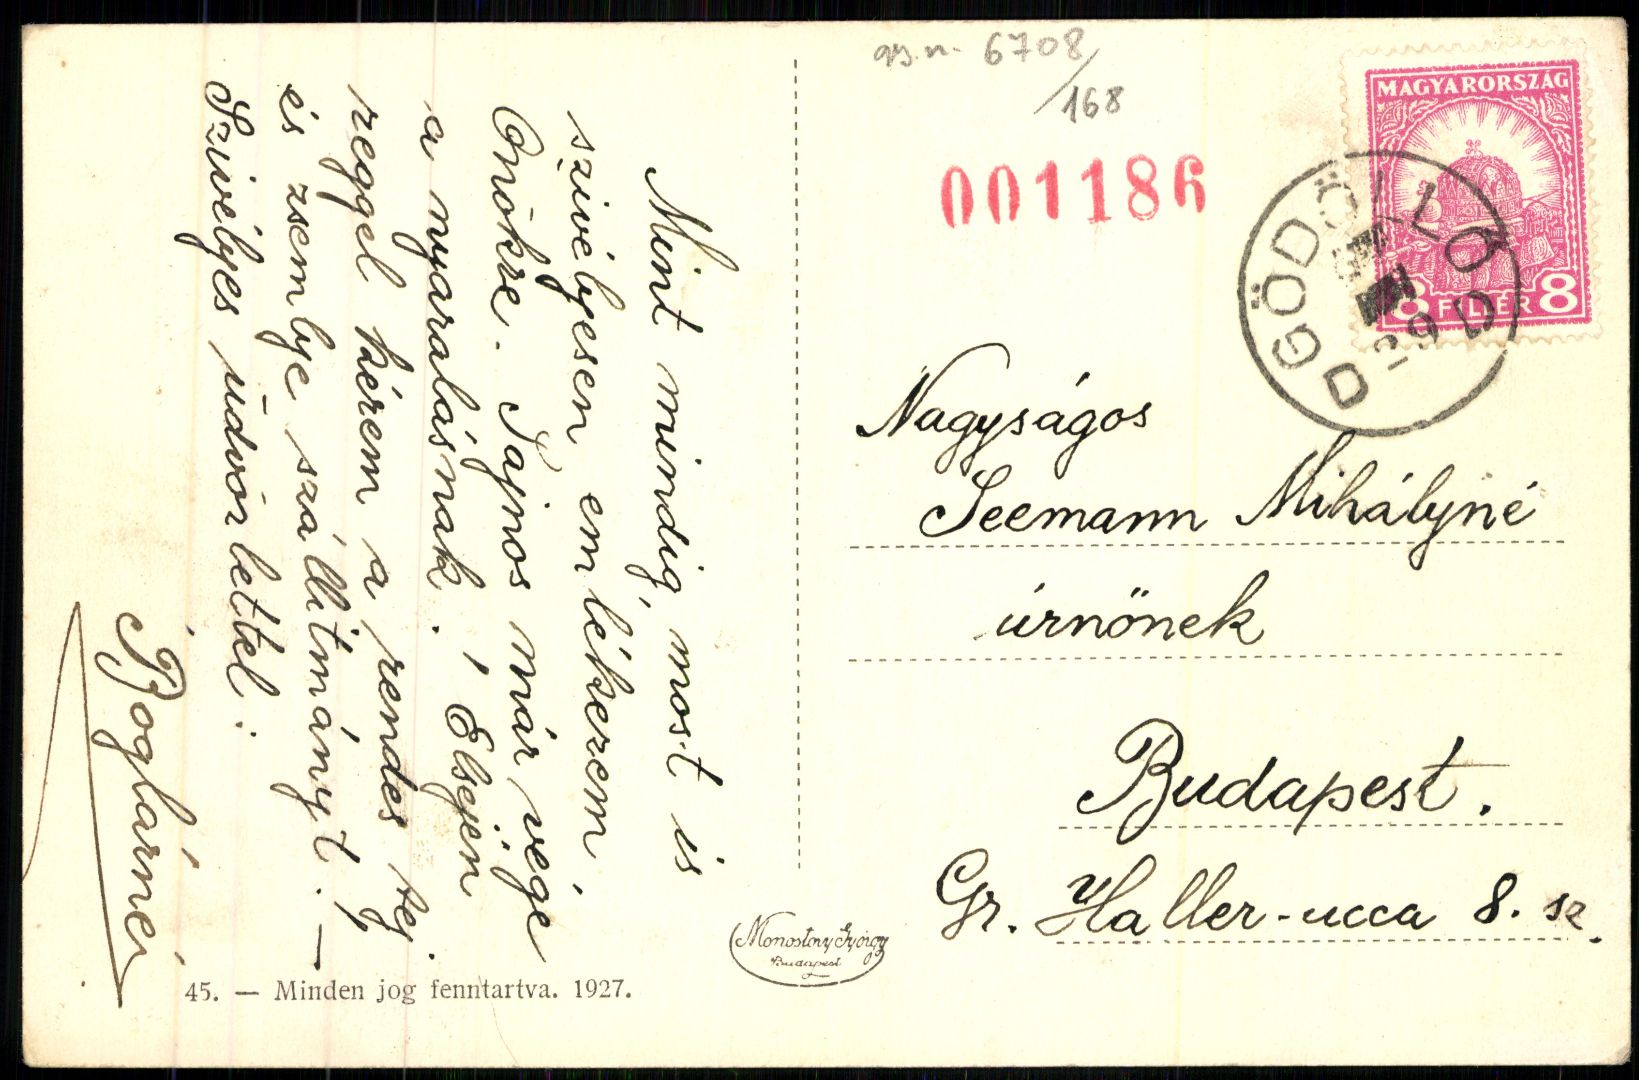 Mint mindig, most is
szivélyesen emlékezem,
Önökre. Sajnos már vége
a nyaralásnak. Elsején
reggel kérem a rendes tej
és zsemlye szállitmányt. —
Szivélyes üdvözlettel:
Boglárné
45. — Minden jog fenntartva. 1927.
Monostory György
Budapest
6708
/168
001186
MAGYARORSZÁG
8 FILLÉR 8
GÖDÖLLŐ
Nagyságos
Seemann Mihályné
úrnőnek
Budapest.
Gr. Haller-ucca 8. sz.